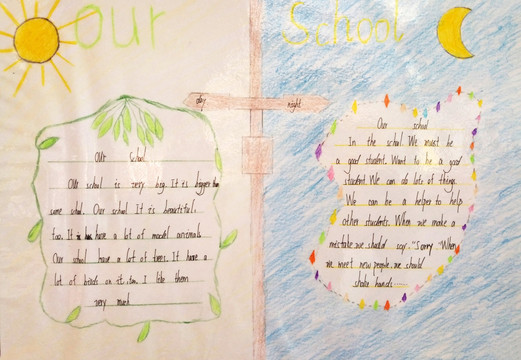 Our School
day
night
Our School
Our school is very big. It is bigger than
some schol. Our school It is beautiful.
too. It have a lot of model animals.
Our school have a lot of trees. It have a
lot of birds on it, too. I like them
very much
Our school
In the school. We must be
a good student. Want to be a good
student. We can do lots of things.
We can be a helper to help
other students. When we make a
mistake we should say. "Sorry" When
we meet new people. we should
shake hands